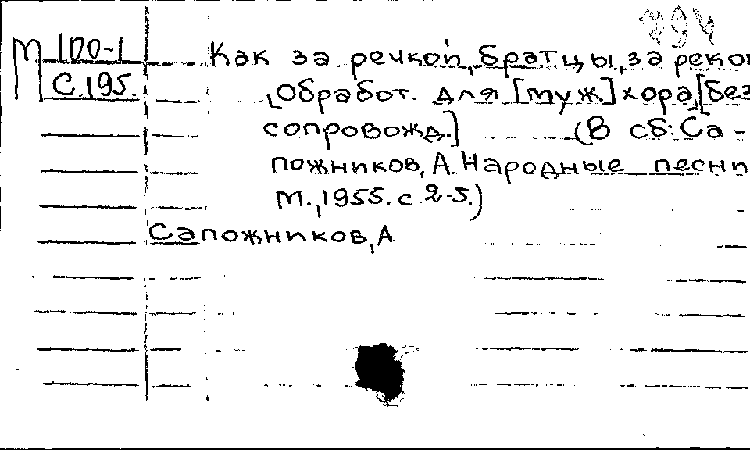 М 100-1
С.195.
Как за речкой, братцы, за реко
[Обработ. для [муж.] хора, [без
сопровожд.] (В сб: Са-
пожников, А. Народные песни
М., 1955. с 2-5.)
Сапожников, А